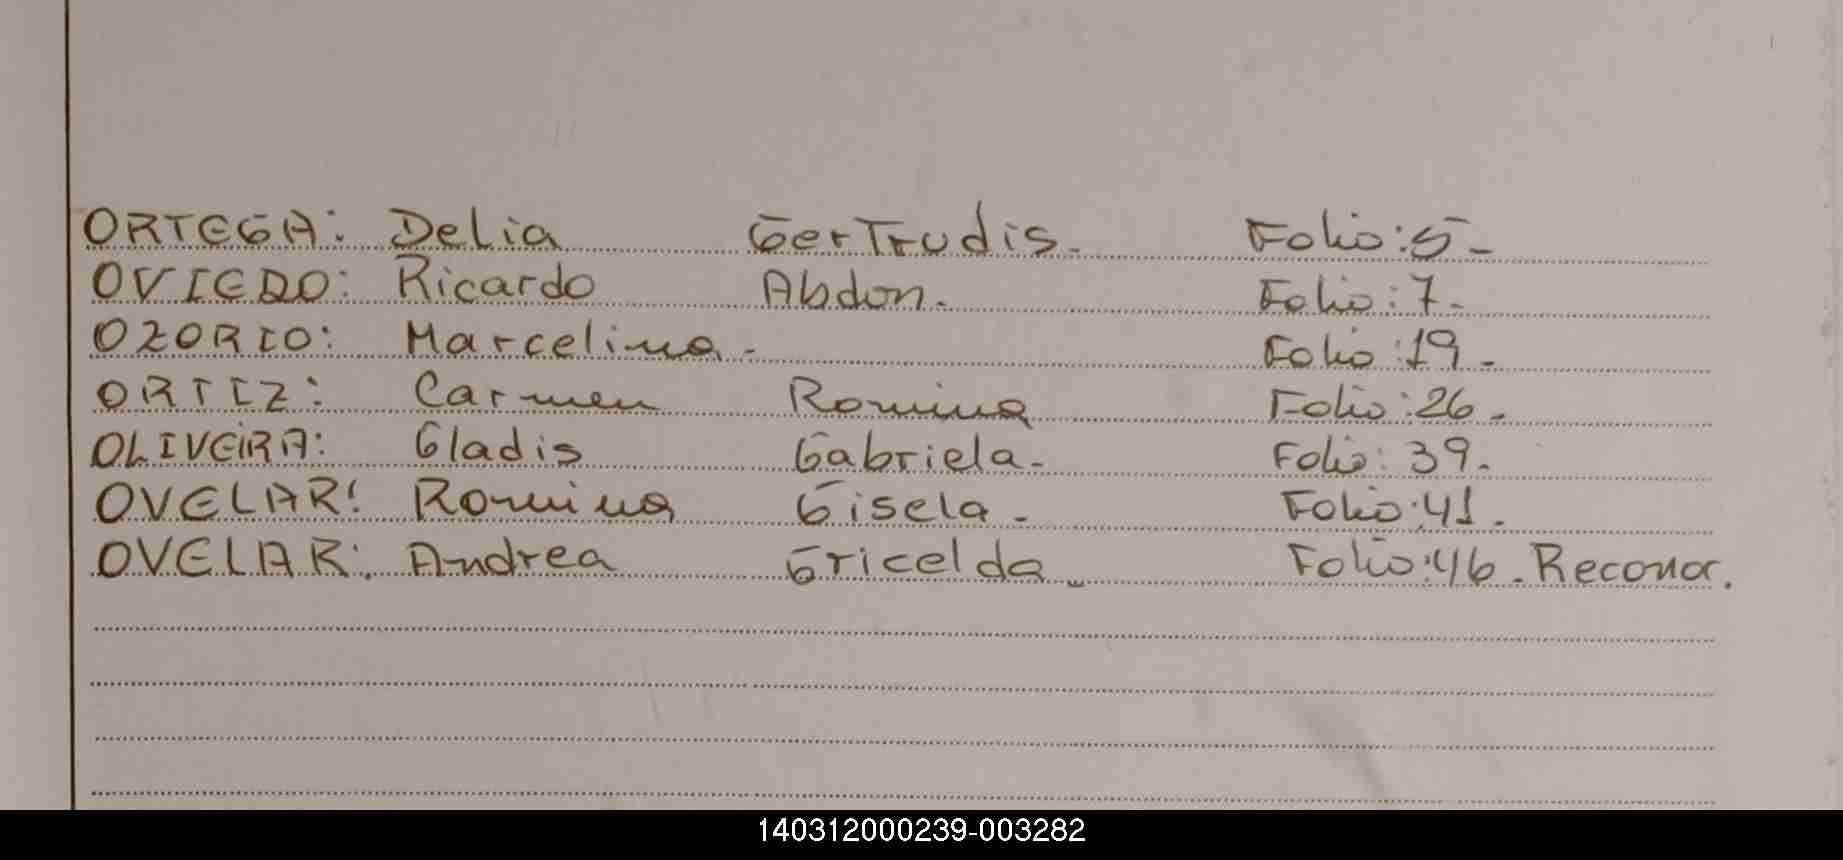 ORTEGA: Delia Gertrudis. Folio: 5-
OVIEDO: Ricardo Abdon. Folio: 7-
OZORIO: Marcelina. Folio: 19-
ORTIZ: Carmen Romina Folio: 26-
OLIVEIRA: Gladis Gabriela- Folio: 39.
OVELAR: Romina Gisela- Folio: 41.
OVELAR: Andrea Gricelda- Folio: 46. Reconoc.
140312000239-003282